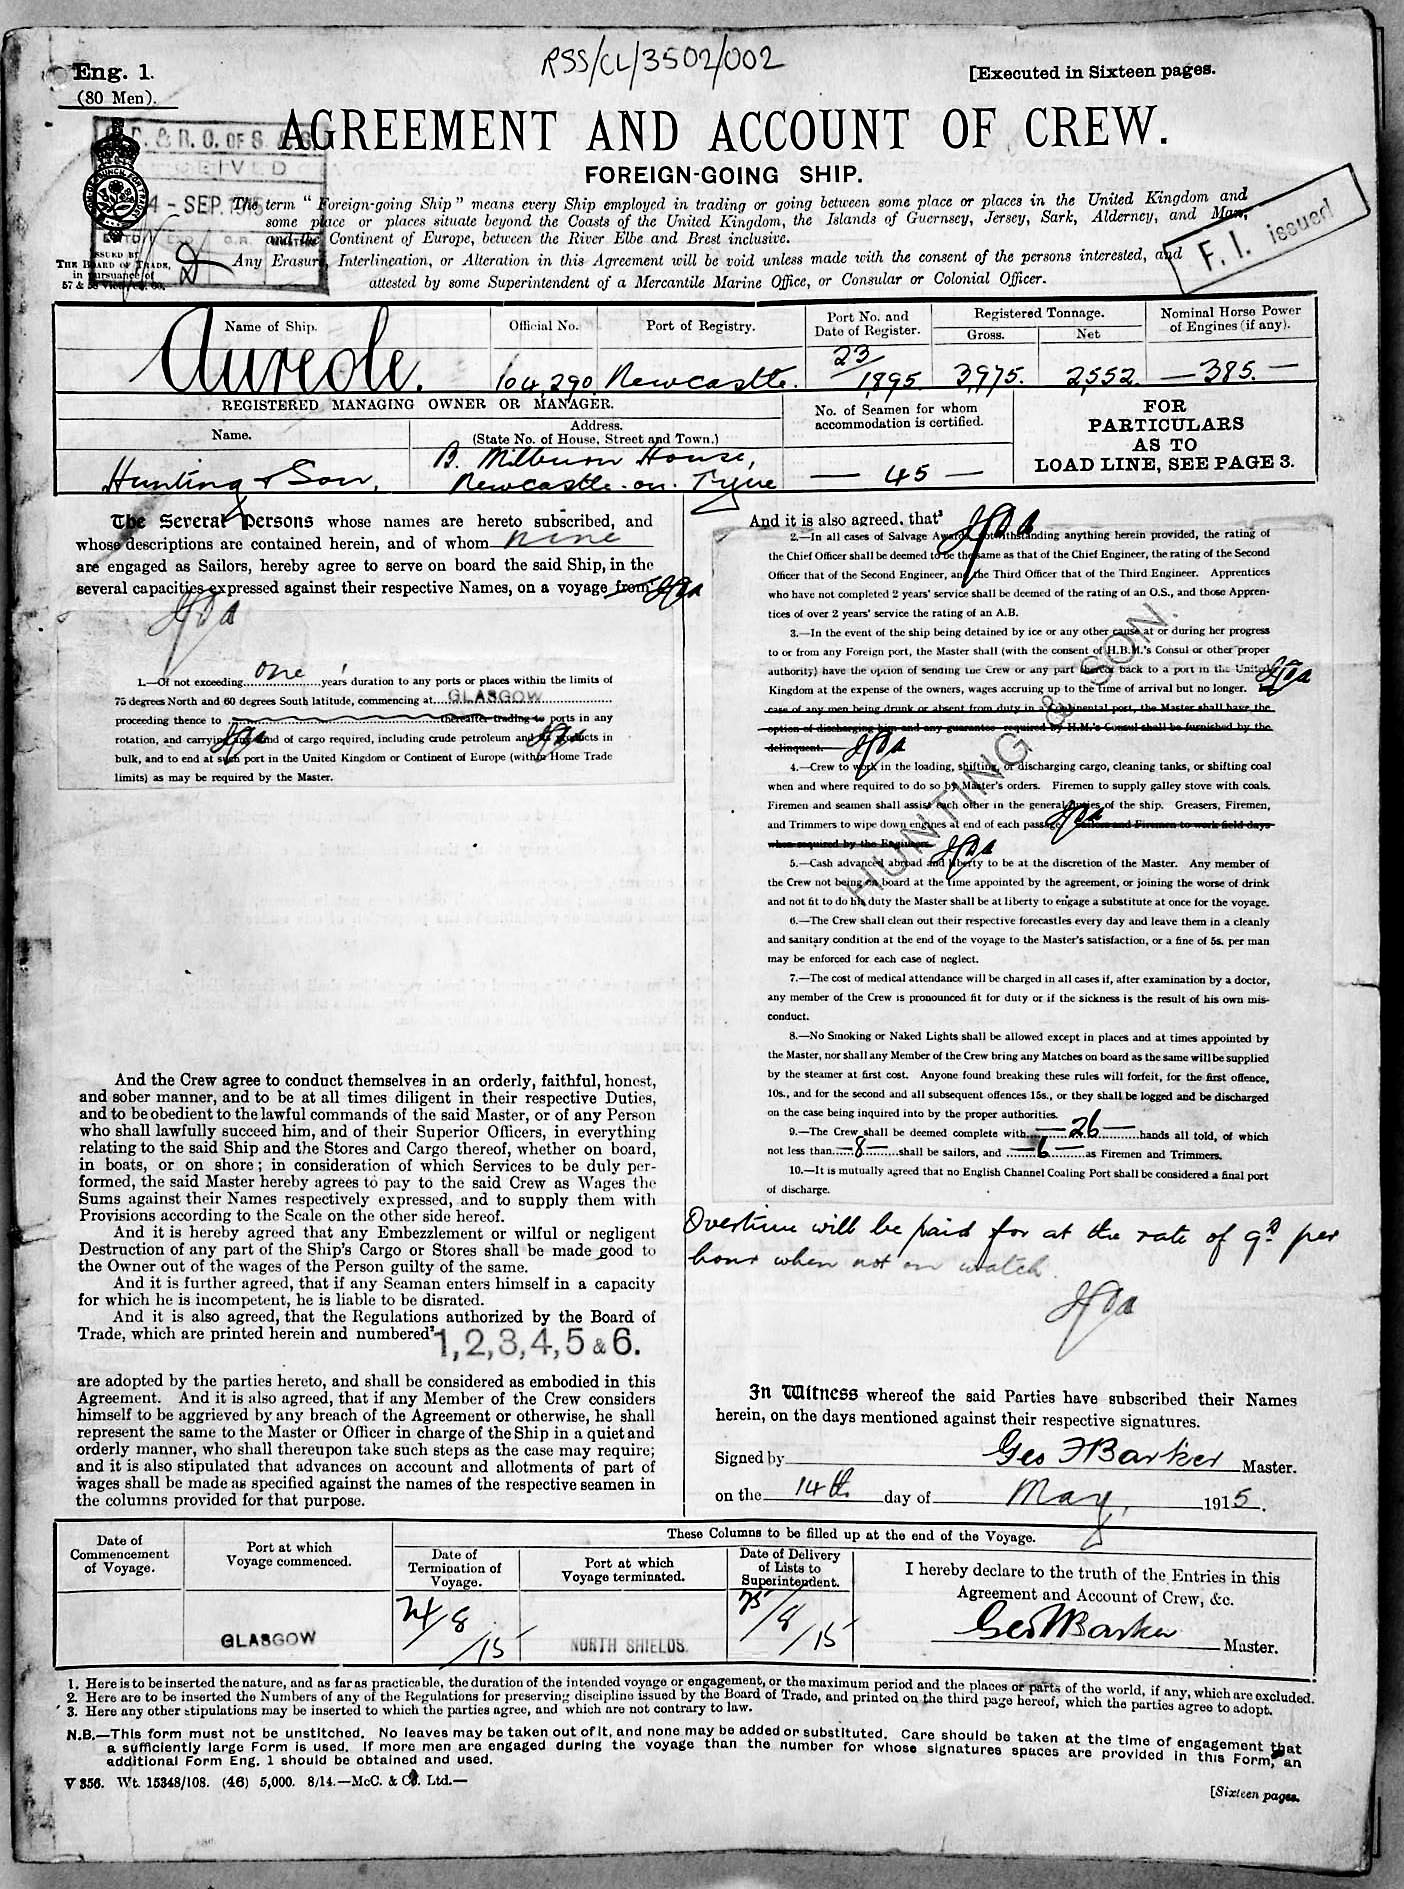 RSS/CL/3502/002
Eng. 1.
(80 Men).
[Executed in Sixteen pages.
AGREEMENT AND ACCOUNT OF CREW.
FOREIGN-GOING SHIP.
& R. O. OF S. & S.
4 - SEP. 1915
ISSUED BY
THE BOARD OF TRADE,
in pursuance of
57 & 58 Vict., ch. 60.
The term "Foreign-going Ship" means every Ship employed in trading or going between some place or places in the United Kingdom and
some place or places situate beyond the Coasts of the United Kingdom, the Islands of Guernsey, Jersey, Sark, Alderney, and Man,
and the Continent of Europe, between the River Elbe and Brest inclusive.
Any Erasure, Interlineation, or Alteration in this Agreement will be void unless made with the consent of the persons interested, and
attested by some Superintendent of a Mercantile Marine Office, or Consular or Colonial Officer.
F. I. issued
Name of Ship.
Official No.
Port of Registry.
Port No. and
Date of Register.
Registered Tonnage.
Gross.
Net
Nominal Horse Power
of Engines (if any).
Aureole.
104,290
Newcastle.
23/1895
3,975.
2,552.
—385.—
REGISTERED MANAGING OWNER OR MANAGER.
Name.
Address.
(State No. of House, Street and Town.)
No. of Seamen for whom
accommodation is certified.
FOR
PARTICULARS
AS TO
LOAD LINE, SEE PAGE 3.
Hunting & Son,
B. Milburn House,
Newcastle-on-Tyne
— 45 —
The Several Persons whose names are hereto subscribed, and
whose descriptions are contained herein, and of whom nine
are engaged as Sailors, hereby agree to serve on board the said Ship, in the
several capacities expressed against their respective Names, on a voyage from¹
1.—Of not exceeding one years duration to any ports or places within the limits of
75 degrees North and 60 degrees South latitude, commencing at GLASGOW
proceeding thence to thereafter trading to ports in any
rotation, and carrying any kind of cargo required, including crude petroleum and its products in
bulk, and to end at such port in the United Kingdom or Continent of Europe (within Home Trade
limits) as may be required by the Master.
And the Crew agree to conduct themselves in an orderly, faithful, honest,
and sober manner, and to be at all times diligent in their respective Duties,
and to be obedient to the lawful commands of the said Master, or of any Person
who shall lawfully succeed him, and of their Superior Officers, in everything
relating to the said Ship and the Stores and Cargo thereof, whether on board,
in boats, or on shore; in consideration of which Services to be duly per-
formed, the said Master hereby agrees to pay to the said Crew as Wages the
Sums against their Names respectively expressed, and to supply them with
Provisions according to the Scale on the other side hereof.
And it is hereby agreed that any Embezzlement or wilful or negligent
Destruction of any part of the Ship's Cargo or Stores shall be made good to
the Owner out of the wages of the Person guilty of the same.
And it is further agreed, that if any Seaman enters himself in a capacity
for which he is incompetent, he is liable to be disrated.
And it is also agreed, that the Regulations authorized by the Board of
Trade, which are printed herein and numbered² 1, 2, 3, 4, 5 & 6.
are adopted by the parties hereto, and shall be considered as embodied in this
Agreement. And it is also agreed, that if any Member of the Crew considers
himself to be aggrieved by any breach of the Agreement or otherwise, he shall
represent the same to the Master or Officer in charge of the Ship in a quiet and
orderly manner, who shall thereupon take such steps as the case may require;
and it is also stipulated that advances on account and allotments of part of
wages shall be made as specified against the names of the respective seamen in
the columns provided for that purpose.
And it is also agreed, that³
2.—In all cases of Salvage Award, notwithstanding anything herein provided, the rating of
the Chief Officer shall be deemed to be the same as that of the Chief Engineer, the rating of the Second
Officer that of the Second Engineer, and the Third Officer that of the Third Engineer. Apprentices
who have not completed 2 years' service shall be deemed of the rating of an O.S., and those Appren-
tices of over 2 years' service the rating of an A.B.
3.—In the event of the ship being detained by ice or any other cause at or during her progress
to or from any Foreign port, the Master shall (with the consent of H.B.M.'s Consul or other proper
authority) have the option of sending the Crew or any part thereof back to a port in the United
Kingdom at the expense of the owners, wages accruing up to the time of arrival but no longer. In
case of any men being drunk or absent from duty in a Continental port, the Master shall have the
option of discharging him and any guarantee required by H.M.'s Consul shall be furnished by the
delinquent.
4.—Crew to work in the loading, shifting, or discharging cargo, cleaning tanks, or shifting coal
when and where required to do so by Master's orders. Firemen to supply galley stove with coals.
Firemen and seamen shall assist each other in the general duties of the ship. Greasers, Firemen,
and Trimmers to wipe down engines at end of each passage. Sailors and Firemen to work field days
when required by the Engineers.
5.—Cash advanced abroad and liberty to be at the discretion of the Master. Any member of
the Crew not being on board at the time appointed by the agreement, or joining the worse of drink
and not fit to do his duty the Master shall be at liberty to engage a substitute at once for the voyage.
6.—The Crew shall clean out their respective forecastles every day and leave them in a cleanly
and sanitary condition at the end of the voyage to the Master's satisfaction, or a fine of 5s. per man
may be enforced for each case of neglect.
7.—The cost of medical attendance will be charged in all cases if, after examination by a doctor,
any member of the Crew is pronounced fit for duty or if the sickness is the result of his own mis-
conduct.
8.—No Smoking or Naked Lights shall be allowed except in places and at times appointed by
the Master, nor shall any Member of the Crew bring any Matches on board as the same will be supplied
by the steamer at first cost. Anyone found breaking these rules will forfeit, for the first offence,
10s., and for the second and all subsequent offences 15s., or they shall be logged and be discharged
on the case being inquired into by the proper authorities.
9.—The Crew shall be deemed complete with —26— hands all told, of which
not less than —8— shall be sailors, and —6— as Firemen and Trimmers.
10.—It is mutually agreed that no English Channel Coaling Port shall be considered a final port
of discharge.
HUNTING & SON.
Overtime will be paid for at the rate of 9d per
hour when not on watch.
In Witness whereof the said Parties have subscribed their Names
herein, on the days mentioned against their respective signatures.
Signed by Geo F Barker Master.
on the 14th day of May, 1915.
Date of
Commencement
of Voyage.
Port at which
Voyage commenced.
These Columns to be filled up at the end of the Voyage.
Date of
Termination of
Voyage.
Port at which
Voyage terminated.
Date of Delivery
of Lists to
Superintendent.
I hereby declare to the truth of the Entries in this
Agreement and Account of Crew, &c.
GLASGOW
24/8/15
NORTH SHIELDS.
25/8/15
Geo F Barker Master.
1. Here is to be inserted the nature, and as far as practicable, the duration of the intended voyage or engagement, or the maximum period and the places or parts of the world, if any, which are excluded.
2. Here are to be inserted the Numbers of any of the Regulations for preserving discipline issued by the Board of Trade, and printed on the third page hereof, which the parties agree to adopt.
3. Here any other stipulations may be inserted to which the parties agree, and which are not contrary to law.
N.B.—This form must not be unstitched. No leaves may be taken out of it, and none may be added or substituted. Care should be taken at the time of engagement that
a sufficiently large Form is used. If more men are engaged during the voyage than the number for whose signatures spaces are provided in this Form, an
additional Form Eng. 1 should be obtained and used.
V 356. Wt. 15348/108. (46) 5,000. 8/14.—McC. & Co. Ltd.—
[Sixteen pages.